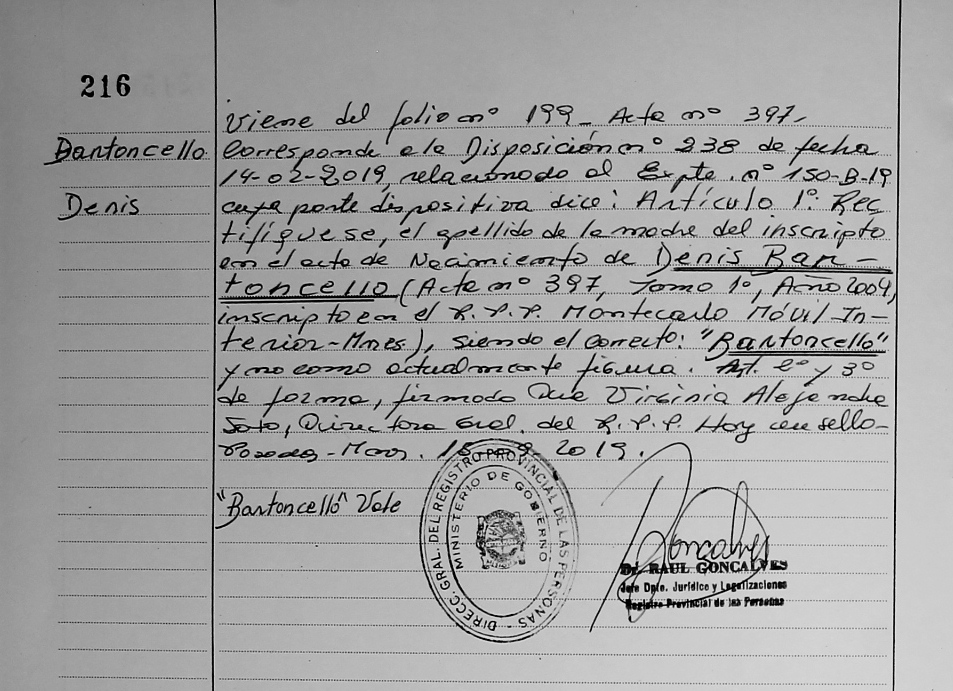 216
Viene del folio nº 199_ Acta nº 397-
Bartoncello
Corresponde a la Disposición nº 238 de fecha
14-02-2019, relacionado al Expte. nº 150-B-19
Denis
cuya parte dispositiva dice: Artículo 1º: Rec
tifíquese, el apellido de la madre del inscripto
en el acta de Nacimiento de Denis Bar-
toncello (Acta nº 397, Tomo 1º, Año 2004,
inscripto en el R.P.P. Montecarlo Móvil In-
terior-Mnes), siendo el correcto: "Bartoncello"
y no como actualmente figura. Art. 2º y 3º
de forma, firmado Dra Virginia Alejandra
Soto, Directora Gral. del R.P.P. Hoy un sello-
Posadas-Mnes. 2019.
"Bartoncello" Vale
DIRECC. GRAL. DEL REGISTRO PROVINCIAL DE LAS PERSONAS -
MINISTERIO DE GOBIERNO
Goncalves
Dr. RAUL GONCALVES
Jefe Dpto. Jurídico y Legalizaciones
Registro Provincial de las Personas